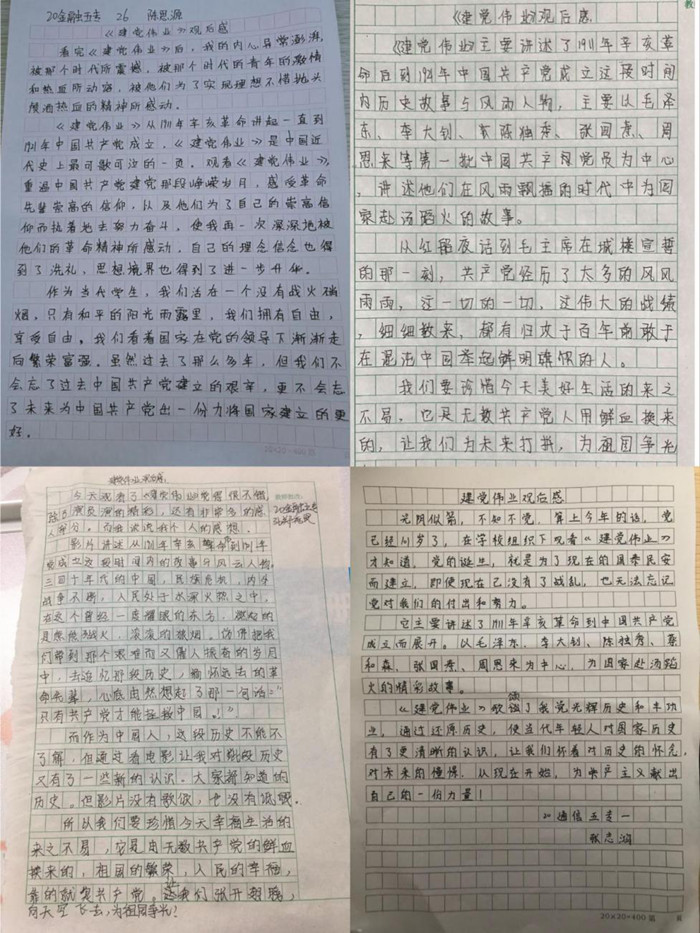 20金融五专 26 陈思源
《建党伟业》观后感
看完《建党伟业》后，我的内心异常澎湃，
被那个时代所震撼，被那个时代的青年的激情
和热血所动容，被他们为了实现理想不惜抛头
颅洒热血的精神所感动。
《建党伟业》从1911年辛亥革命讲起一直到
1921年中国共产党成立，《建党伟业》是中国近
代史上最可歌可泣的一页。观看《建党伟业》，
重温中国共产党建党那段峥嵘岁月，感受革命
先辈崇高的信仰，以及他们为了自己的崇高信
仰而执着地去努力奋斗，使我再一次深深地被
他们的革命精神所感动，自己的理念信念也得
到了洗礼，思想境界也得到了进一步升华。
作为当代学生，我们活在一个没有战火硝
烟，只有和平的阳光雨露里，我们拥有自由，
享受自由。我们看着国家在党的领导下渐渐走
向繁荣富强。虽然过去了那么多年，但我们不
会忘了过去中国共产党建立的艰辛，更不会忘
了未来为中国共产党出一份力将国家建立的更
好。
20×20=400
《建党伟业》观后感
《建党伟业》主要讲述了1911年辛亥革
命后到1921年中国共产党成立这段时间
内历史故事与风雨人物，主要以毛泽
东、李大钊、陈独秀、张国焘、周
恩来等第一批中国共产党党员为中心
，讲述他们在风雨飘摇的时代中为国
家赴汤蹈火的故事。
从红船夜话到毛主席在城楼宣誓
的那一刻，共产党经历了太多的风风
雨雨，这一切的一切，这伟大的战绩
，细细数来，都有归功于百年前敢于
在混沌中国举起鲜明旗帜的人。
我们要珍惜今天美好生活的来之
不易，它是无数共产党人用鲜血换来
的，让我们为未来打拼，为祖国争光
建党伟业观后感
今天观看了《建党伟业》觉得很不错
演员演的精彩，还有非常多的感
人部分，而且谈谈我个人的感想。
影片讲述从1911年辛亥革命到1921年
党成立这段时间内的故事与风云人物，
二十年代的中国，民族危机，内外
战争不断，人民处于水深火热之中，
在这个曾经一度耀眼的东方，燃起的
是熊熊战火，滚滚的狼烟。仿佛把我
们带到那个艰难而又催人振奋的岁月
中，去追忆那段历史，缅怀远去的革
命先辈，心底由然想起了那一句话："
只有共产党才能拯救中国。！"
而作为中国人，这段历史不能不
了解，但通过看电影让我对那段历史
又有了一些新的认识。大家都知道的
历史。但影片没有歌颂，也没有诋毁。
所以我们要珍惜今天幸福生活的
来之不易，它是由无数共产党的鲜血
换来的，祖国的繁荣，人民的幸福，
靠的就是共产党。让我们张开翅膀，
向天空飞去，为祖国争光！
建党伟业观后感
光阴似箭，不知不觉，算上今年的话，党
已经100岁了，在学校组织下观看《建党伟业》
才知道，党的诞生，就是为了现在的国泰民安
而建立，即使现在已没有了战乱，也无法忘记
党对我们的付出和努力。
它主要讲述了1911年辛亥革命到中国共产党
成立而展开。以毛泽东，李大钊、陈独秀、蔡
和森、张国焘、周恩来为中心，为国家赴汤蹈
火的精彩故事。
《建党伟业》歌颂了我党光辉历史和丰功
业，通过还原历史，使当代年轻人对国家历史
有了更清晰的认识，让我们怀着对历史的怀念，
对未来的憧憬，从现在开始，为共产主义献出
自己的一份力量！
通信五专一
20×20=400